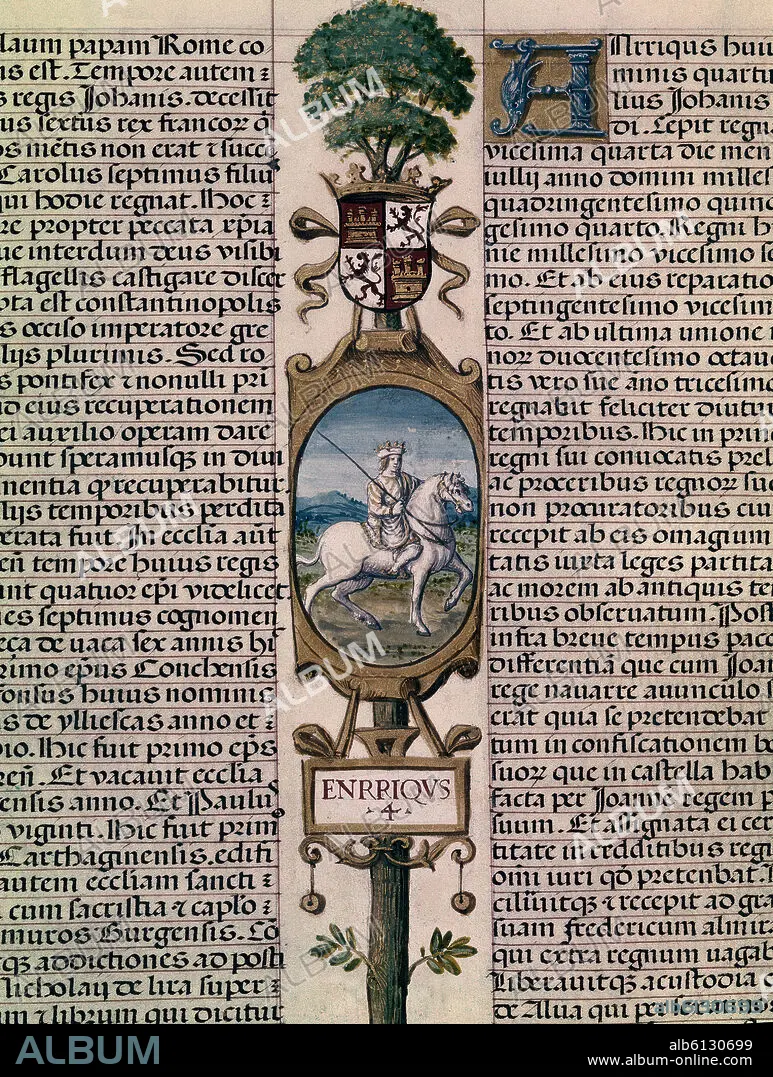 laum papam Rome co
us est. Tempore autem ꝛ
s regis Johanis. decessit
us sextus rex francoꝝ q̃
os mẽtis non erat ⁊ succe
Carolus septimus filiu
qui hodie regnat. Hoc ꝛ
re propter peccata xp̃ia
ue interdum deus visibi
flagellis castigare discer
pta est constantinopolis
s occiso imperatore gre
lijs plurimis. Sed ro
s pontifex ⁊ nonulli pri
ad eius recuperationem
ei auxilio operam dare
bunt speramusqꝫ in diui
mentia qͥ recuperabitur
lijs temporibus perdita
erata fuit. In ecclia aũt
eñ tempore huius regis
unt quatuor ep̃i videlicet
es septimus cognomen
eca de vaca sex annis hi
rimo ep̃us Conchensis
fonsus huius nominis
s de ylliescas anno et ꝛ
pio. Hic fuit primo ep̃s
reñ. Et vacauit ecclia
ensis anno. Et Paulus
viginti. Hic fuit prim
Carthaginensis. edifi
autem eccliam sancti ꝛ
cum sacristia ⁊ caplo ꝛ
muros Burgensis. Co
qꝫ addictiones ad posti
Nicholay de lira super ꝛ
um ⁊ librum qui dicitur
ENRRIQVS
4
Nrriqus huiu
minis quartu
lius Johanis
di. Cepit regn
vicesima quarta die men
iulij anno domini milles
quadringentesimo quinq
gesimo quarto. Regni h
nie millesimo vicesimo se
mo. Et ab eius reparatio
septingentesimo vicesim
to. Et ab ultima unione
noꝝ duocentesimo octau
tis vero sue ano tricesimo
regnabit feliciter diutur
temporibus. Hic in prin
regni sui conuocatis prel
ac proceribus regnoꝝ suo
non procuratoribus ciui
recepit ab eis omagium
tatis iuxta leges partita
ac morem ab antiquis te
ribus obseruatum. Post
infra breue tempus pace
differentiã que cum Joan
rege nauarre auunculo s
erat quia se pretendebat
tum in confiscationem bo
suoꝝ que in castella hab
facta per Joanne regem p
suum. Et assignata ei cer
titate in redditibus regi
omi iuri qđ pretenbat.
ciliuitqꝫ ⁊ recepit ad gra
suam fredericum almira
qui extra regnum vagab
Liberauitqꝫ a custodia
de Alua qui per
ALBUM
alb6130699
www.album-online.com